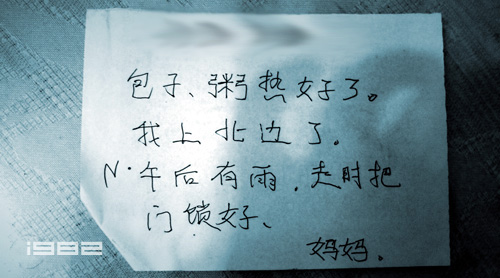 包子、粥热好了。
我上北边了。
N·午后有雨,走时把
门锁好、
妈妈.
i982